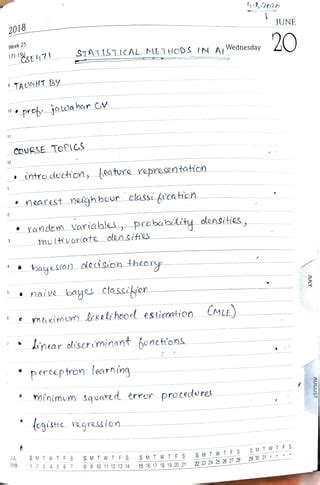 4-8-2020
1
2018
JUNE
Week 25
CSE471
STATISTICAL METHODS IN AI
Wednesday
20
TAUGHT BY
• prof. jawahar CV
COURSE TOPICS
• introduction, feature representation
• nearest neighbour classification
• random variables, probability densities,
multivariate densities
• bayesian decision theory
• naive bayes classifier
• maximum likelihood estimation (MLE)
• linear discriminant functions
• perceptron learning
• minimum squared error procedures
• logistic regression
JULY
AUGUST
S M T W T F S S M T W T F S S M T W T F S S M T W T F S S M T W T F S
1 2 3 4 5 6 7 8 9 10 11 12 13 14 15 16 17 18 19 20 21 22 23 24 25 26 27 28 29 30 31